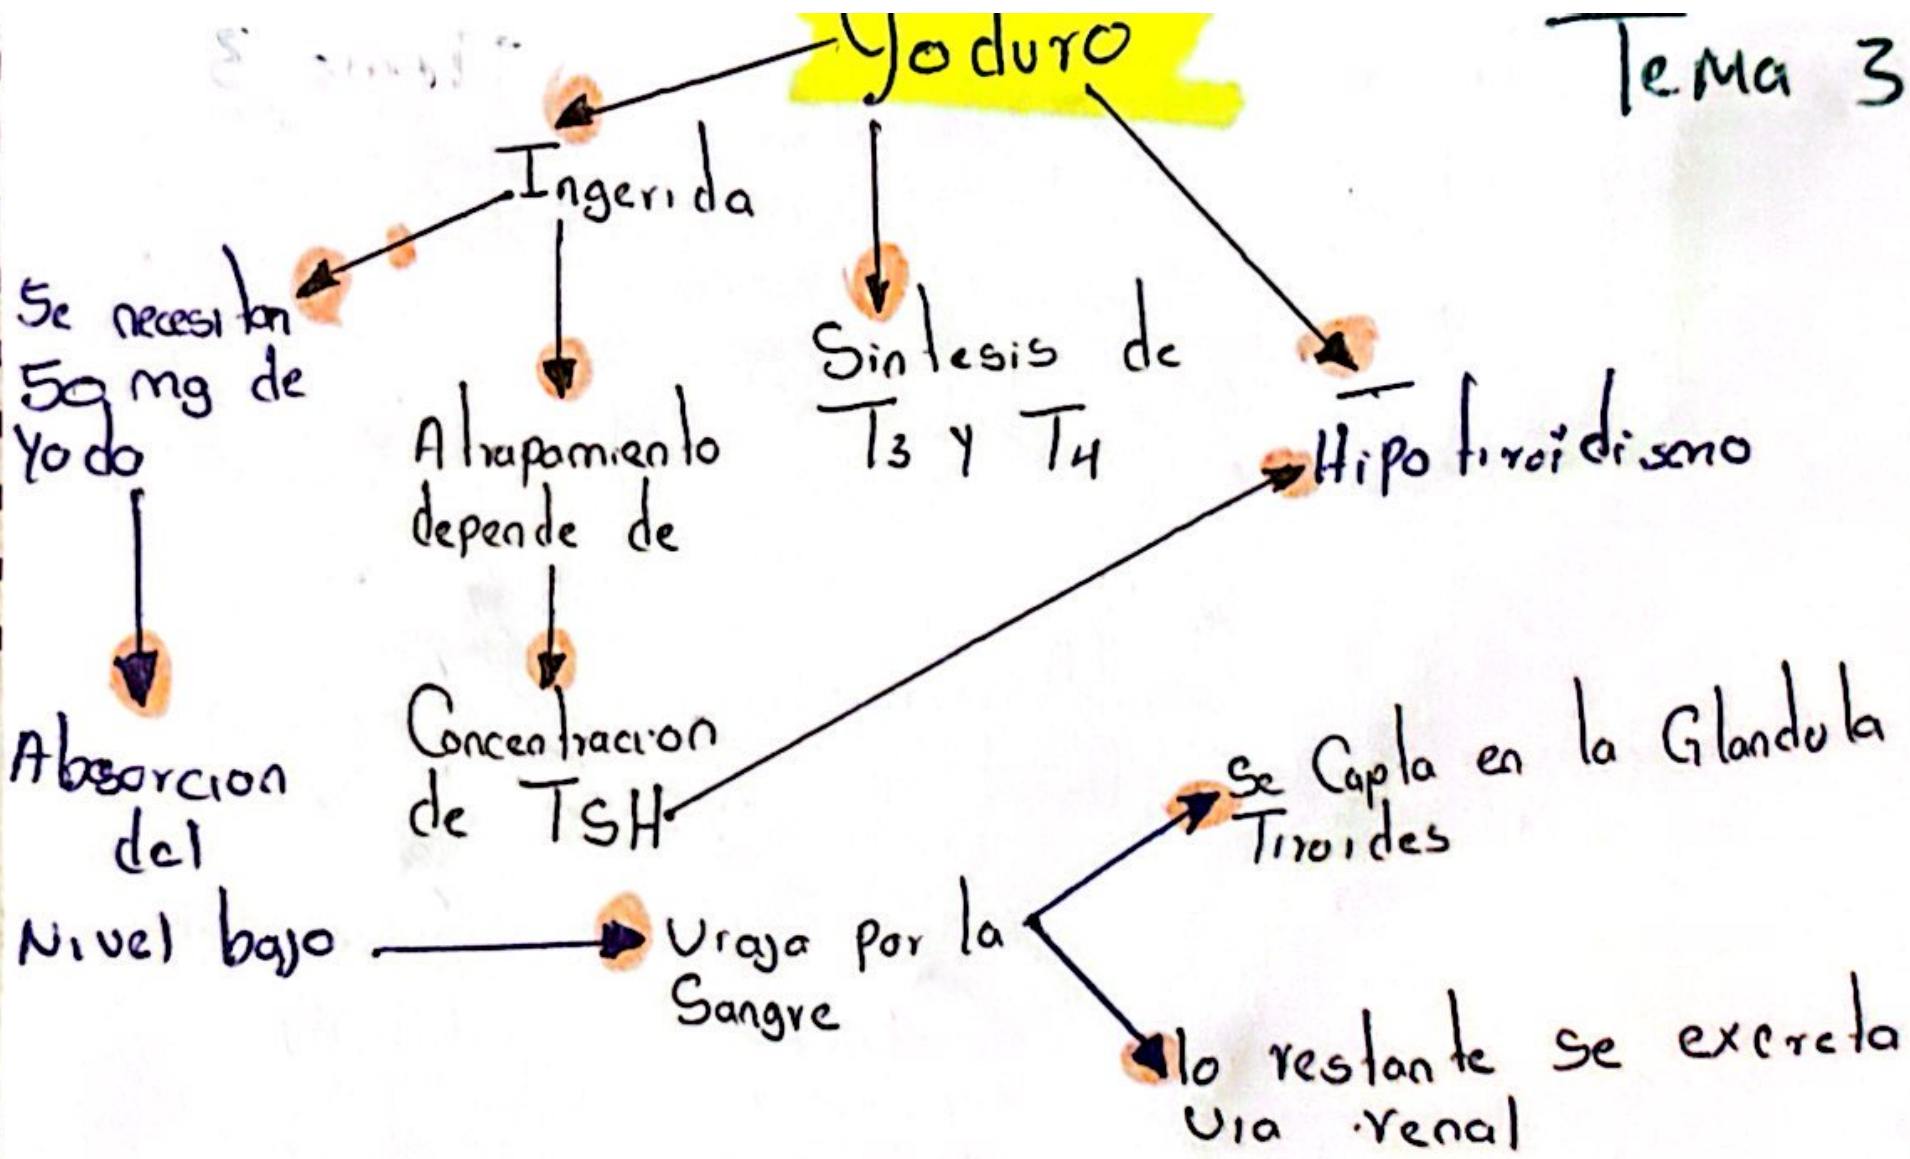 Yoduro
Tema 3
Ingerida
Se necesitan
50 mg de
Yodo
Atrapamiento
depende de
Sintesis de
T3 y T4
Hipotiroidismo
Concentracion
de TSH
Absorcion
del
Nivel bajo
Viaja por la
Sangre
Se Capta en la Glandula
Tiroides
lo restante se excreta
via renal